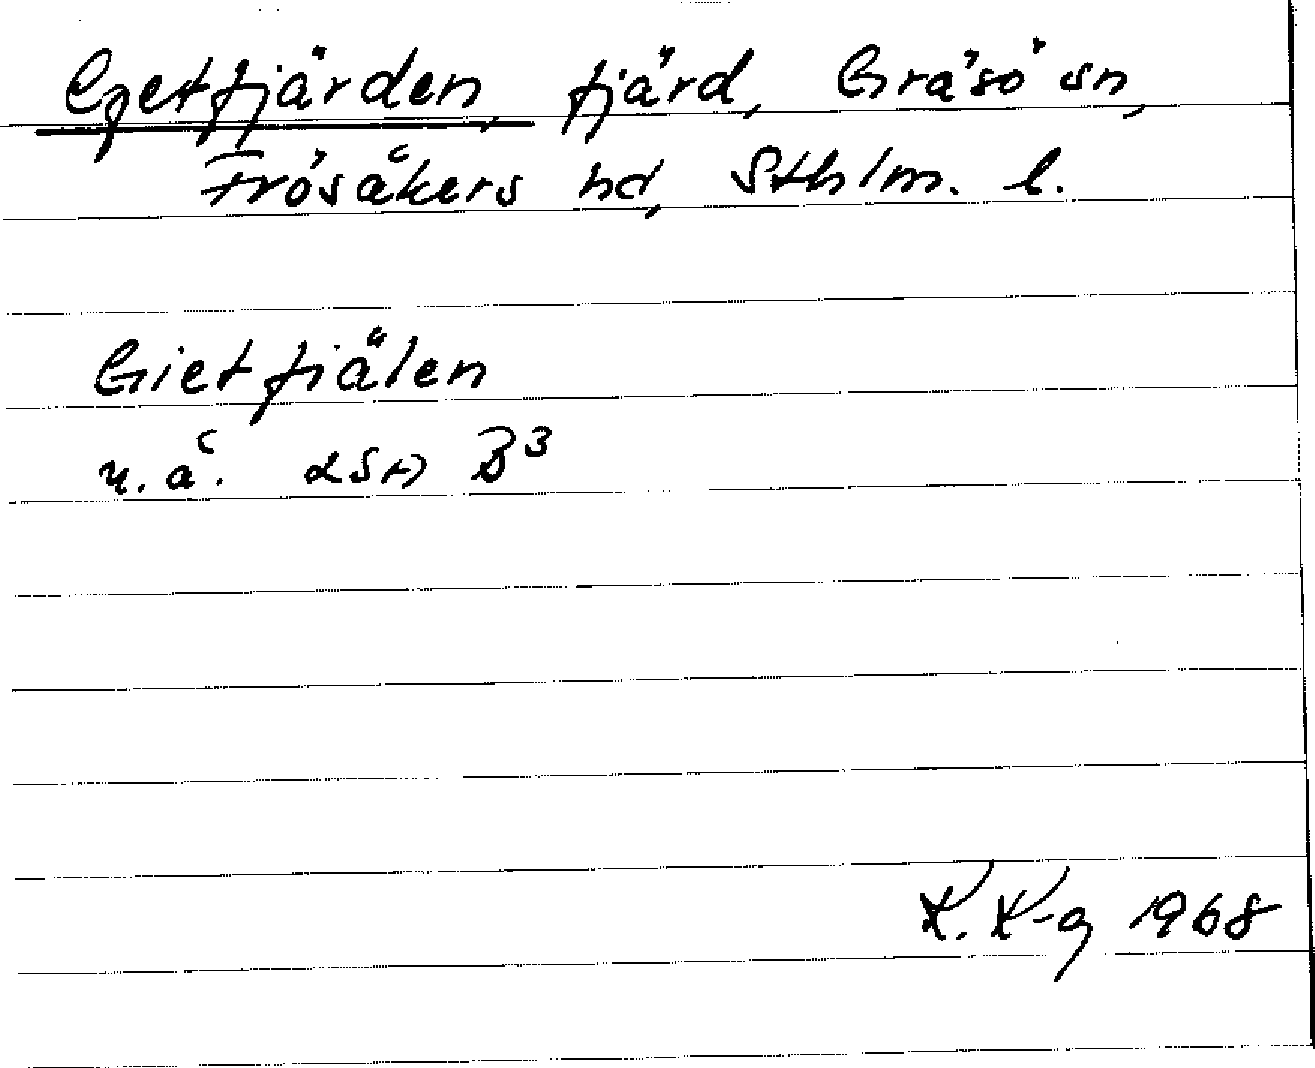 Getfjärden, fjärd, Gräsö sn,
Frösåkers hd, Sthlm. l.
Gietfiälen
u.å. LSA B3
K. K-g 1968